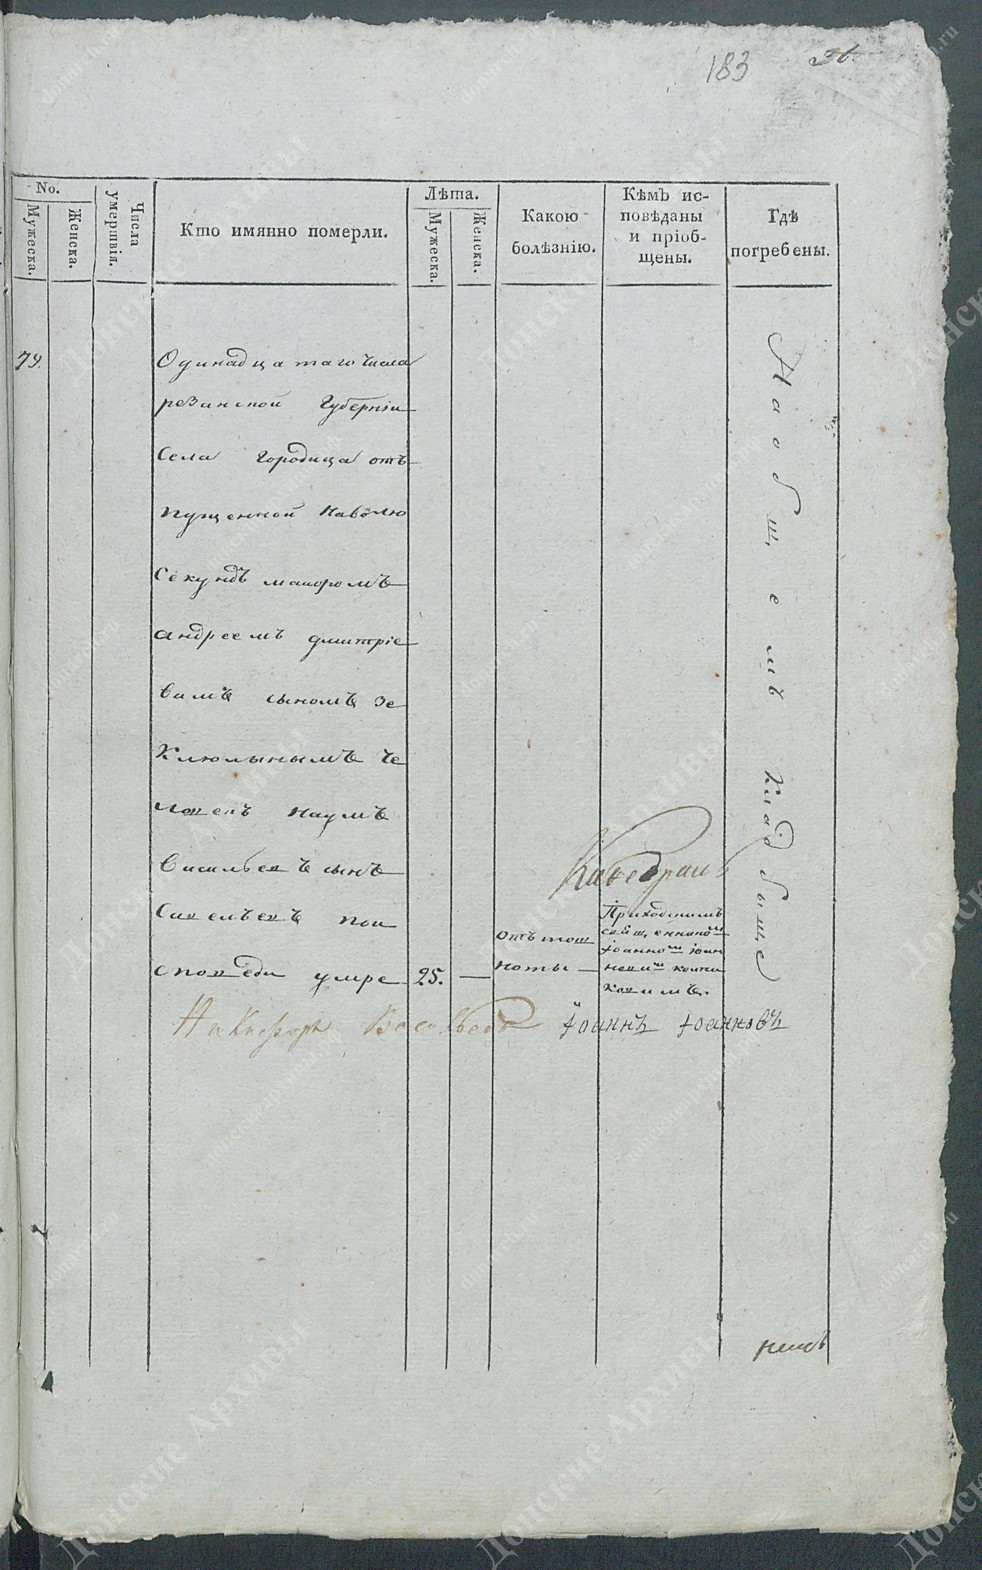 183
36
No.
Мужеска.
Женска.
Числа умершвія.
Кто имянно померли.
Лѣта.
Мужеска.
Женска.
Какою болѣзнію.
Кѣмъ исповѣданы и пріобщены.
Гдѣ погребены.
79.
Одинадцатаго числа
резанской губерніи
села городица отъ
пущенной наволю
секундъ маиоромъ
андреемъ дмитріе
вимъ сыномъ зе
клюлынымъ че
ловекъ наумъ
васильевъ сынъ
савельевъ пои
споведи умре
25.
—
отъ тош
ноты —
Приходскимъ
свящ,енникомъ
Іоанномъ
На общ,емъ кладбыще
Никифоръ Васильевъ
Іоаннъ Іоанновъ